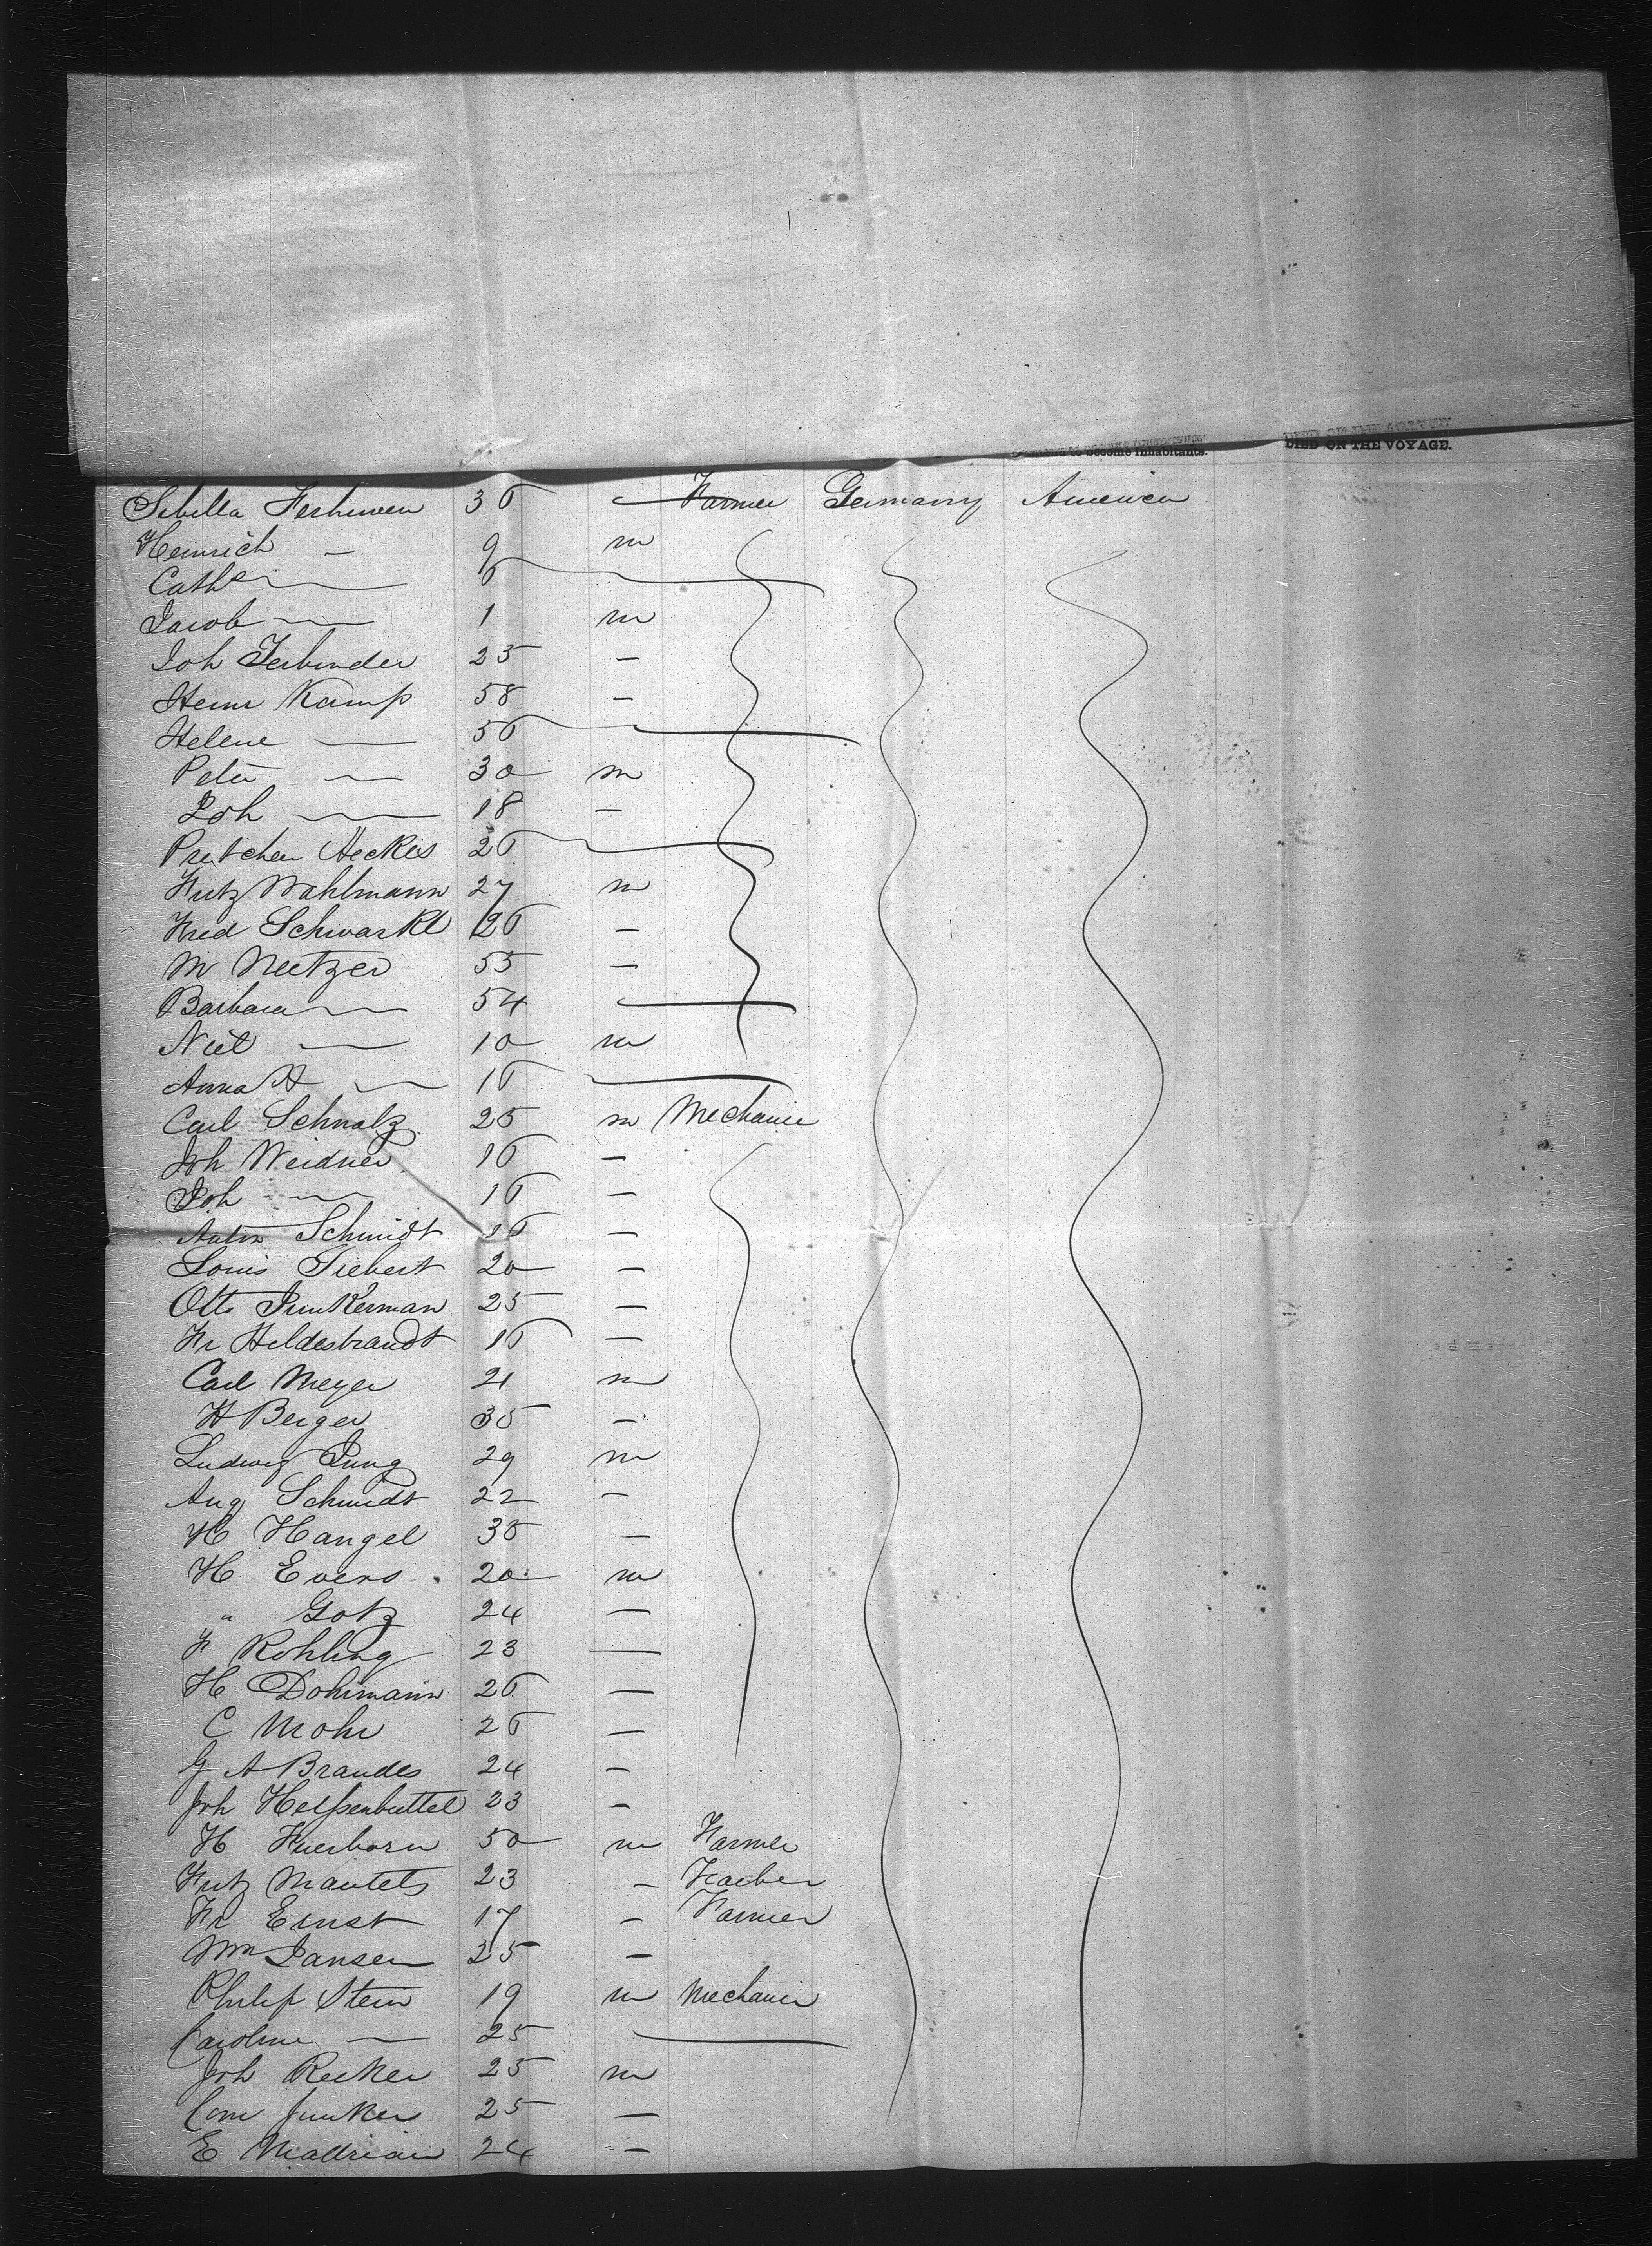 become inhabitants. DIED ON THE VOYAGE.
Sibilla 36 — Farmer Germany America
Heinrich — 9 m
Cath — 6
Jacob — 1 m
Joh Terbinder 25 —
Heinr Kamp 58 —
Helene — 56
Peter — 30 m
Joh — 18 —
Heckes 26
Fritz Wahlmann 27 m
Fred 26 —
M Metzer 55 —
Barbara — 54
10 m
Anna — 16
Carl Schmalz 25 m Mechanic
Joh Weidner 16 —
Joh — 16 —
Anton Schmidt 16 —
Louis Siebert 20 —
Otto Junkerman 25 —
Fr Hildesbrandt 16 —
Carl Meyer 21 m
H Berger 35 —
Ludwig Jung 29 m
Aug Schmidt 22 —
H Hangel 35 —
H Evers 20 m
" Gotz 24 —
F Rohling 23 —
H Dohrmann 26 —
C Mohr 26 —
G A Brandes 24 —
Joh Heissenbuttel 23 —
H 50 m Farmer
Fritz Mantels 23 —
Fr Ernst 17 — Farmer
Wm Jansen 25 —
Philip Stein 19 m Mechanic
Caroline — 25
Joh 25 m
Junker 25 —
E 24 —